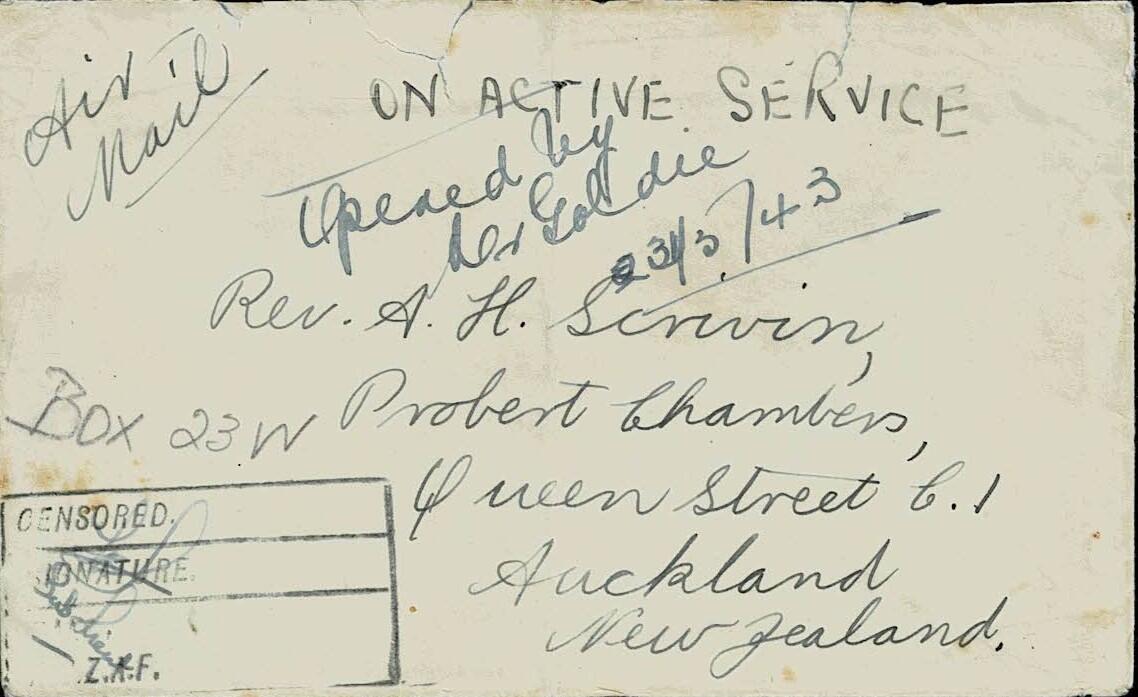 Air
Mail
ON ACTIVE SERVICE
Opened by
Dr Goldie
23/3/43
Rev. A. H. Scrivin,
Box 23W
Probert Chambers,
Queen Street C.1
Auckland
New Zealand.
CENSORED.
SIGNATURE.